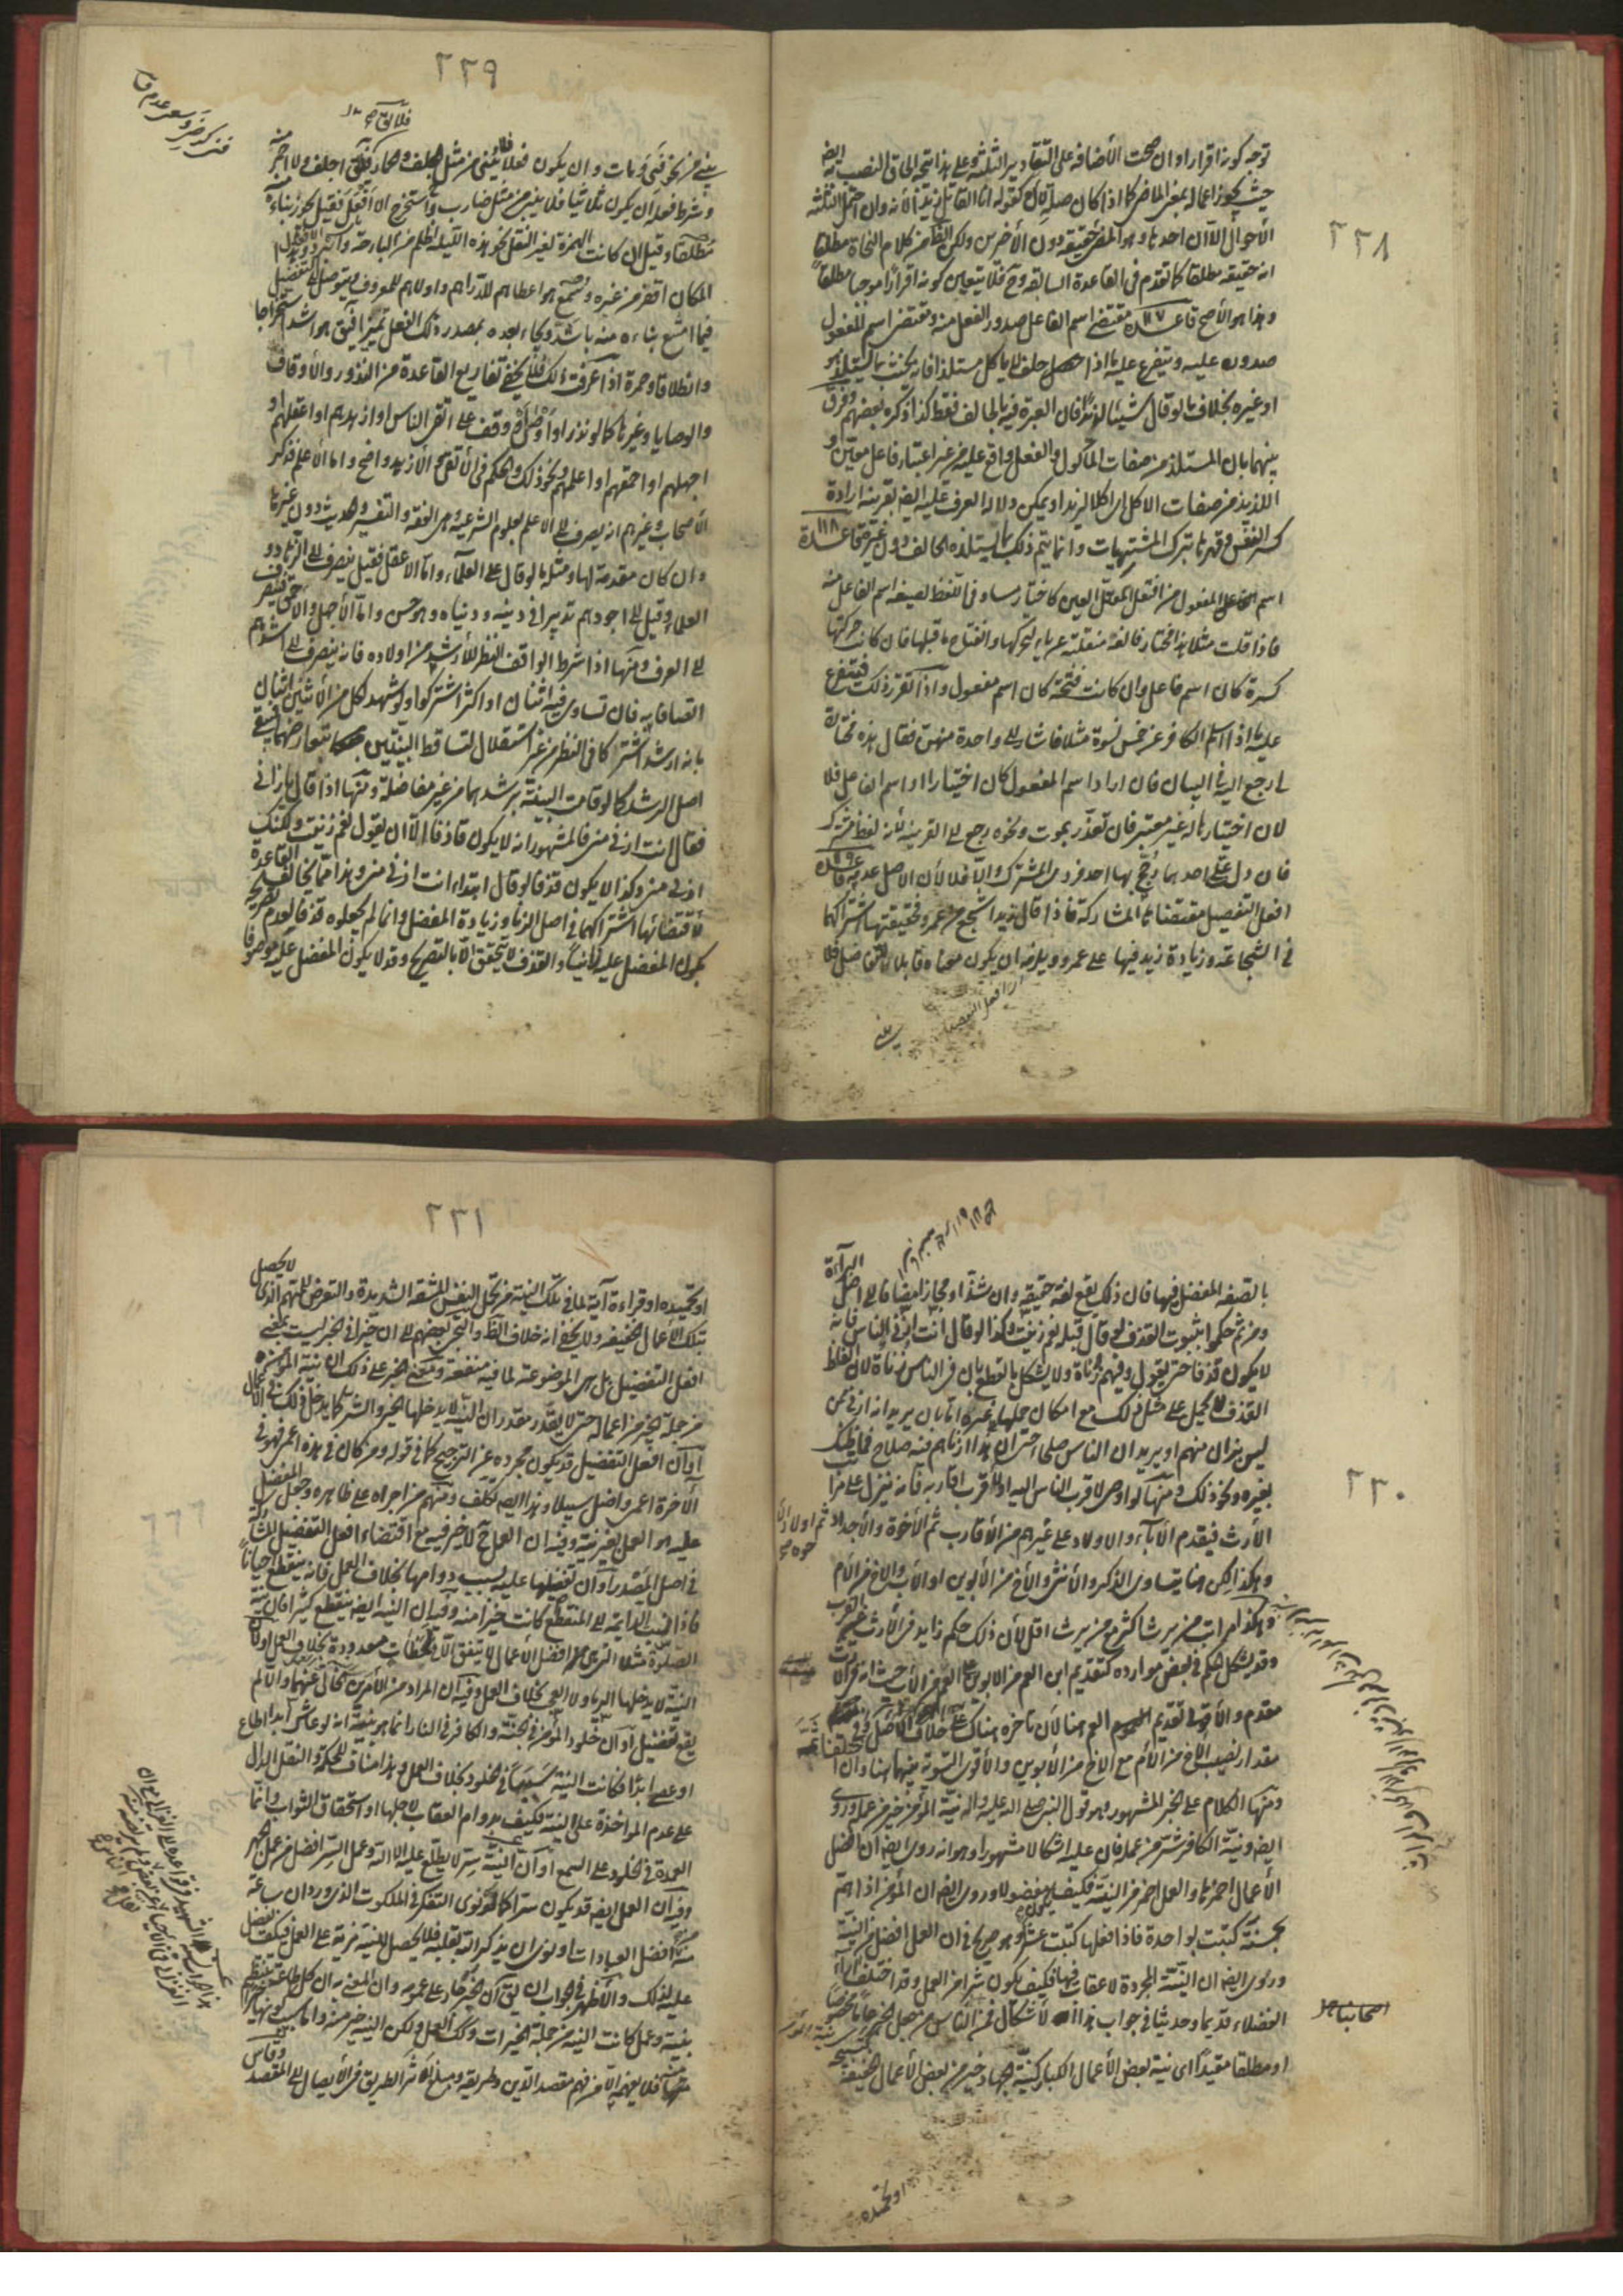 ٢٢٨
توجه كونه اقرارا وان صحت الأضافه على التقادير الثلثه وعلى هذا يتجه الحاق النصب به ايضا
حيث يجوز اعماله بمعنى الماضى كما اذا كان صلة لال كقوله انا القاتل زيدا لأنه وان احتمل الثلثه
الأحوال الا ان احدها وهو المضى حقيقه دون الأخرين ولكن الظاهر من كلام النحاة مطلقا
انه حقيقه مطلقا كما تقدم فى القاعدة السابقه وح فلا يتعين كونه اقرارا موجها مطلقا
وهذا هو الأصح قاعدة ١١٧ مقتضى اسم الفاعل صدور الفعل منه ومقتضى اسم المفعول
صدوره عليه ويتفرع عليه ما اذا حلف لا ياكل مستلذا فانه يحنث بما يستلذه هو
او غيره بخلاف ما لو قال شيئا لذيذا فان العبرة فيه بالحالف فقط كذا ذكره بعضهم وفرق
بينهما بان المستلذ من صفات المأكول والفعل واقع عليه من غير اعتبار فاعل معين و
اللذيذ من صفات الاكل اى اكلا لذيذا ويمكن دلالة العرف عليه ايضا بقرينة ارادة
كسر النفس وقهرها بترك المشتهيات وانما يتم ذلك بما يستلذه الحالف دون غيره قاعدة ١١٨
اسم الفاعل والمفعول من افتعل المعتل العين كاختار مساو فى اللفظ لصيغة اسم الفاعل منه
فاذا قلت مثلا هذا مختار فالفه منقلبة عن ياء لتحركها وانفتاح ما قبلها فان كانت حركتها
كسرة كان اسم فاعل وان كانت فتحة كان اسم مفعول واذا تقرر ذلك فيتفرع
عليه ما اذا اسلم الكافر عن خمس نسوة مثلا فاشار الى واحدة منهن فقال هذه مختارة
لى رجع اليه فى البيان فان اراد اسم المفعول كان اختيارا او اسم الفاعل فلا
لان اختيارها له غير معتبر فان تعذر بموت ونحوه رجع الى القرينه لأنه لفظ مشترك
فان دل على احدهما رجح بها احد فردى المشترك والا فلا لأن الاصل عدمه قاعدة ١١٩
افعل التفضيل مقتضاه المشاركة فاذا قال زيد اشجع من عمرو فحقيقتها اشتراكهما
فى الشجاعة وزيادة زيد فيها على عمرو ويلزمه ان يكون معناه قابلا للتفاضل فلا
يبنى
٢٢٩
يبنى من نحو فنى ومات وان يكون فعلا فلا يبنى من مثل جلف وحمار فلا يق اجلف ولا احمر منه
وشرط فعله ان يكون ثلاثيا فلا يبنى من مثل ضارب واستخرج الا افعل فقيل يجوز بناءه منه
مطلقا وقيل ان كانت الهمزة لغير النقل نحو هذه الليله اظلم من البارحة وهذا
المكان اقفر من غيره وسمع هو اعطاهم للدراهم واولاهم للمعروف ويتوصل الى التفضيل
فيما امتنع بناءه منه باشد ويجاء بعده بمصدر ذلك الفعل تميزا فيق هو اشد استخراجا
وانطلاقا وحمرة اذا عرفت ذلك فلا يخفى تفاريع القاعدة من النذور والأوقاف
والوصايا وغيرها كما لو نذر او اوصى او وقف على اتقى الناس او ازهدهم او اعقلهم او
اجهلهم او احمقهم او اعلمهم ونحو ذلك والحكم فى الأتقى والازهد واضح واما الأعلم فذكر
الأصحاب وغيرهم انه يصرف الى الاعلم بعلوم الشرعيه وهى الفقه والتفسير والحديث دون غيرها
وان كان مقدمة لها ومثله ما لو قال على العلماء واما الاعقل فقيل ينصرف الى الزهاد و
العلماء وقيل الى اجودهم تدبيرا فى دينه ودنياه وهو حسن واما الأجهل والأحمق
الى العرف ومنها اذا شرط الواقف النظر للأرشد من اولاده فانه ينصرف الى اشدهم
اتصافا به فان تساوى فيه اثنان او اكثر اشتركوا ولو شهد لكل من الأثنين اثنان
بانه ارشد اشتركا فى النظر من غير استقلال لتساقط البينتين بتعارضهما فيبقى
اصل الرشد كما لو قامت البينة برشدهما من غير مفاضلة ومنها اذا قال يا زانى
فقال انت ازنى منى فالمشهور انه لا يكون قاذفا الا ان يقول نعم زنيت ولكنك
ازنى منى وكذا لا يكون قذفا لو قال ابتداء انت ازنى منى وهذا مما يخالف القاعدة
لأقتضائها اشتراكهما فى اصل الزنا وزيادة المفضل وانما لم يجعلوه قذفا لعدم تصريحه
بكون المفضل عليه زانيا والقذف لا يتحقق الا بالتصريح وقد لا يكون المفضل عليه موصوفا
٢٣٠
بالصفه المفضل فيها فان ذلك يقع لغة حقيقة وان شذ او مجازا مضافا الى اصل البراءة
ومن ثم حكموا بثبوت القذف لو قال قبله نعم زنيت وكذا لو قال انت ازنى الناس فانه
لا يكون قذفا حتى يقول وفيهم زناة ولا يشكل بالقطع بان فى الناس زناة لان لفظ
القذف لا يحمل على مثل ذلك مع امكان حمله على غيره اما بان يريد انه ازنى ممن
ليس بزان منهم او يريد ان الناس صلحاء حتى ان هذا ازناهم فيه صلاح فما ظنك
بغيره ونحو ذلك ومنها لو اوصى لاقرب الناس اليه او لاقرب اقاربه فانه ينزل على مراتب
الأرث فيقدم الآباء والاولاد على غيرهم من الأقارب ثم الأخوة والأجداد ثم اولاد
وهكذا لكن هنا يتساوى الذكر والأنثى والأخ من الأبوين او الأب والاخ من الأم
وهكذا من يرث اكثر مع من يرث اقل لأن ذلك حكم زايد فى الأرث
وقد يشكل الحكم فى بعض موارده كتقديم ابن العم من الابوين على العم من الأب حيث انه فى الارث
مقدم والأقوى تقديم العم هنا لان تاخره هناك على خلاف الأصل وفى
مقدار نصيب الاخ من الأم مع الاخ من الأبوين والأقوى التسوية بينهما هنا وان
ومنها الكلام على الخبر المشهور وهو قول النبى صلى الله عليه واله نية المؤمن خير من عمله وروى
ايضا ونية الكافر شر من عمله فان عليه اشكالا مشهورا وهو انه روى ايضا ان افضل
الأعمال احمزها والعمل احمز من النية فكيف يكون مفضولا وروى ايضا ان المؤمن اذا هم
بحسنة كتبت بواحدة فاذا فعلها كتبت عشرا وهو صريح فى ان العمل افضل من النية
وروى ايضا ان النية المجردة لا عقاب فيها فكيف يكون شرا من العمل وقد اختلف
الفضلاء قديما وحديثا فى جواب هذا الاشكال فمن الناس من جعل الخبر
او مطلقا مقيدا اى نية بعض الأعمال الكبار كنية الجهاد خير من بعض الأعمال الخفيفة
او تحميده
٢٣١
او تحميده او قراءة آية لما فى تلك النية من تحمل النفس المشقة الشديدة والتعرض للهم الذى لا يحصل
بتلك الأعمال الخفيفة ولا يخفى انه خلاف الظاهر والتجئ بعضهم الى ان خيرا فى الخبر ليست بمعنى
افعل التفضيل بل هى الموضوعة لما فيه منفعة ومعنى الخبر على ذلك ان نية المؤمن
من جملة الخير من اعماله حتى لا يقدر مقدر ان النية لا يدخلها الخير والشر كما يدخل ذلك فى الأعمال
او ان افعل التفضيل قد يكون مجردة عن الترجيح كما فى قوله ومن كان فى هذه اعمى فهو فى
الأخرة اعمى واضل سبيلا وهذا ايضا تكلف ومنهم من اجراه على ظاهره وجعل المفضل
عليه هو العمل بغير نية وفيه ان العمل ح لا خير فيه مع اقتضاء افعل التفضيل المشاركة
فى اصل المصدر او ان تفضيلها عليه بسبب دوامها بخلاف العمل فانه ينقطع احيانا
فاذا نسبت الدايمة الى المنقطع كانت خيرا منه وفيه ان النية ايضا ينقطع كثيرا فان نية
الصلوة مثلا التى هى افضل الأعمال لا يتفق الا فى لحظات معدودة بخلاف العمل او لان
النية لا يدخلها الرياء ولا العجب بخلاف العمل وفيه ان المراد من الأمرين الخالى عنهما والا لم
يقع تفضيل او ان خلود المؤمن فى الجنة والكافر فى النار انما هو بنية انه لو عاش ابدا اطاع
او عصى ابدا فكانت النية سببا فى الخلود بخلاف العمل وهذا مناف للحكمة والنقل الدال
على عدم المؤاخذة على النية فكيف بدوام العقاب لاجلها او استحقاق الثواب وانما
العمدة فى الخلود على السمع او ان النية سر لا يطلع عليه الا الله وعمل السر افضل من عمل الجهر
وفيه ان العمل ايضا قد يكون سرا كما لو نوى التفكر فى الملكوت الذى ورد ان ساعة
منه افضل العبادات او نوى ان يذكر الله بقلبه فلا يحصل للنية مزية على العمل فكيف تفضل
عليه لذلك والأظهر فى الجواب ان يق ان الخبر جار على عمومه وان المعنى به ان كل طاعة تنتظم
بنية وعمل كانت النية من جملة الخيرات وكذلك العمل ولكن النية خير منه واما سبب
فلا يفهمه الا من فهم مقصد الدين وطريقه ومبلغ اثر الطريق فى الأيصال الى المقصد